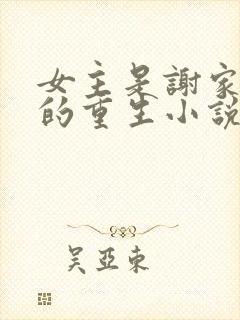 女主是謝家
的重生小說
吴亞東